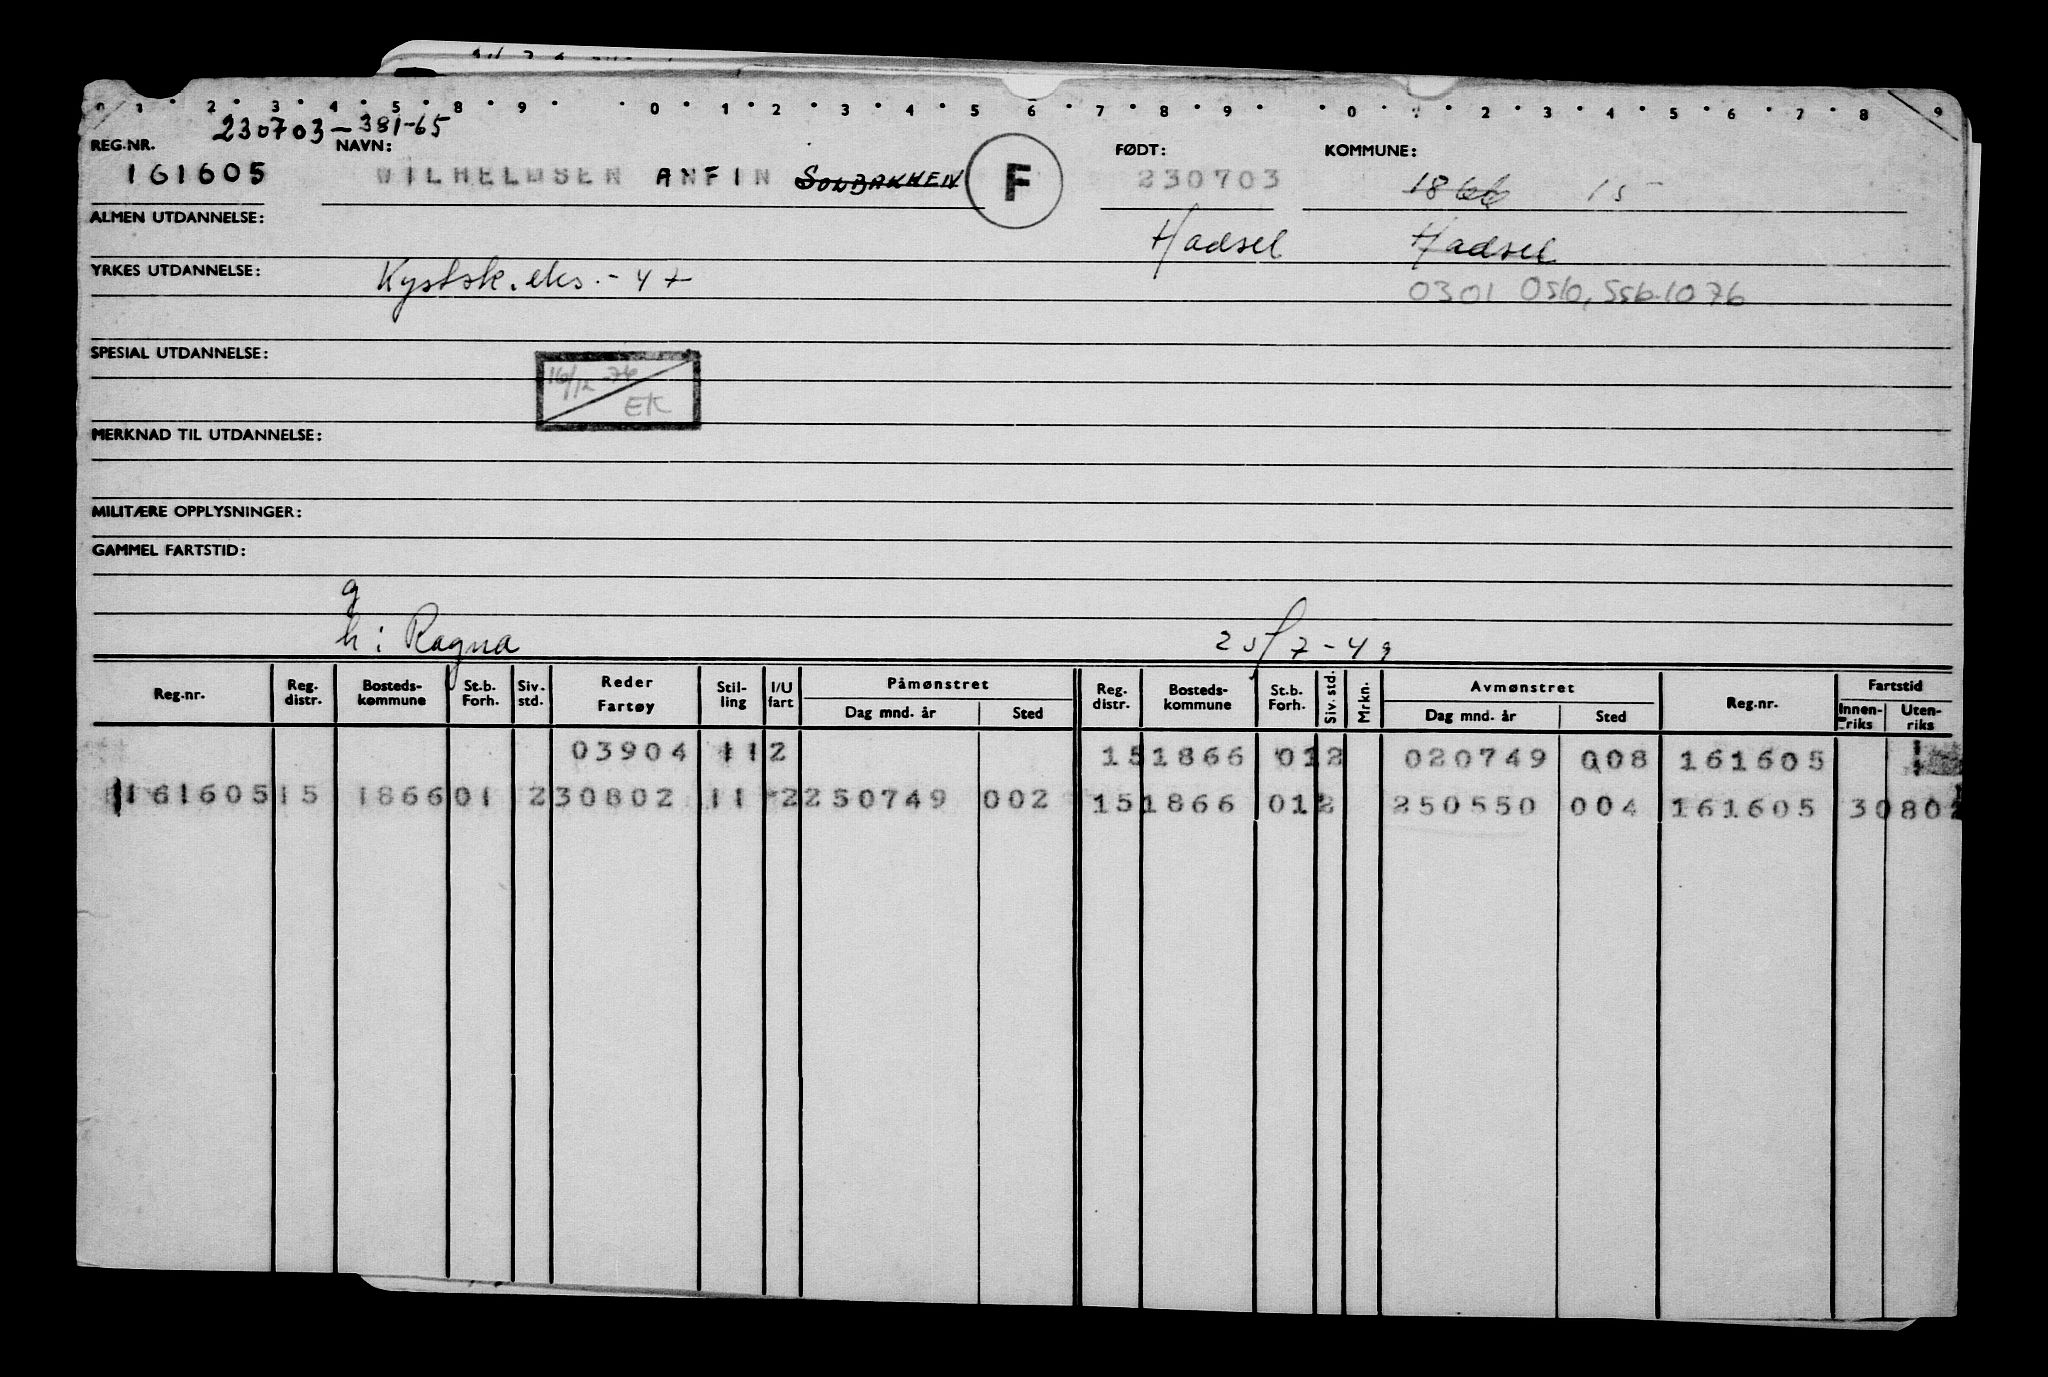 0 1 2 3 4 5 8 9 0 1 2 3 4 5 6 7 8 9 0 1 2 3 4 5 6 7 8 9
230703-381-65
REG.NR. NAVN: FØDT: KOMMUNE:
161605 WILHELMSEN ANFIN SOLBAKKEN F 230703 1866 15
ALMEN UTDANNELSE: Hadsel Hadsel
YRKES UTDANNELSE: Kystsk. eks. - 47 0301 Oslo, Ssb. 1076
SPESIAL UTDANNELSE:
16/12-76
EK
MERKNAD TIL UTDANNELSE:
MILITÆRE OPPLYSNINGER:
GAMMEL FARTSTID:
g
h: Ragna 25/7-49
Reg.nr. Reg. distr. Bosteds-kommune St.b. Forh. Siv. std. Reder Fartøy Stil-ling I/U fart Påmønstret Dag mnd. år Sted Reg. distr. Bosteds-kommune St.b. Forh. Siv. std. Mrkn. Avmønstret Dag mnd. år Sted Reg.nr. Fartstid Innen-riks Uten-riks
03904 112 151866 012 020749 008 161605
161605 15 1866 01 2 30802 11 2 250749 002 151866 012 250550 004 161605 30802